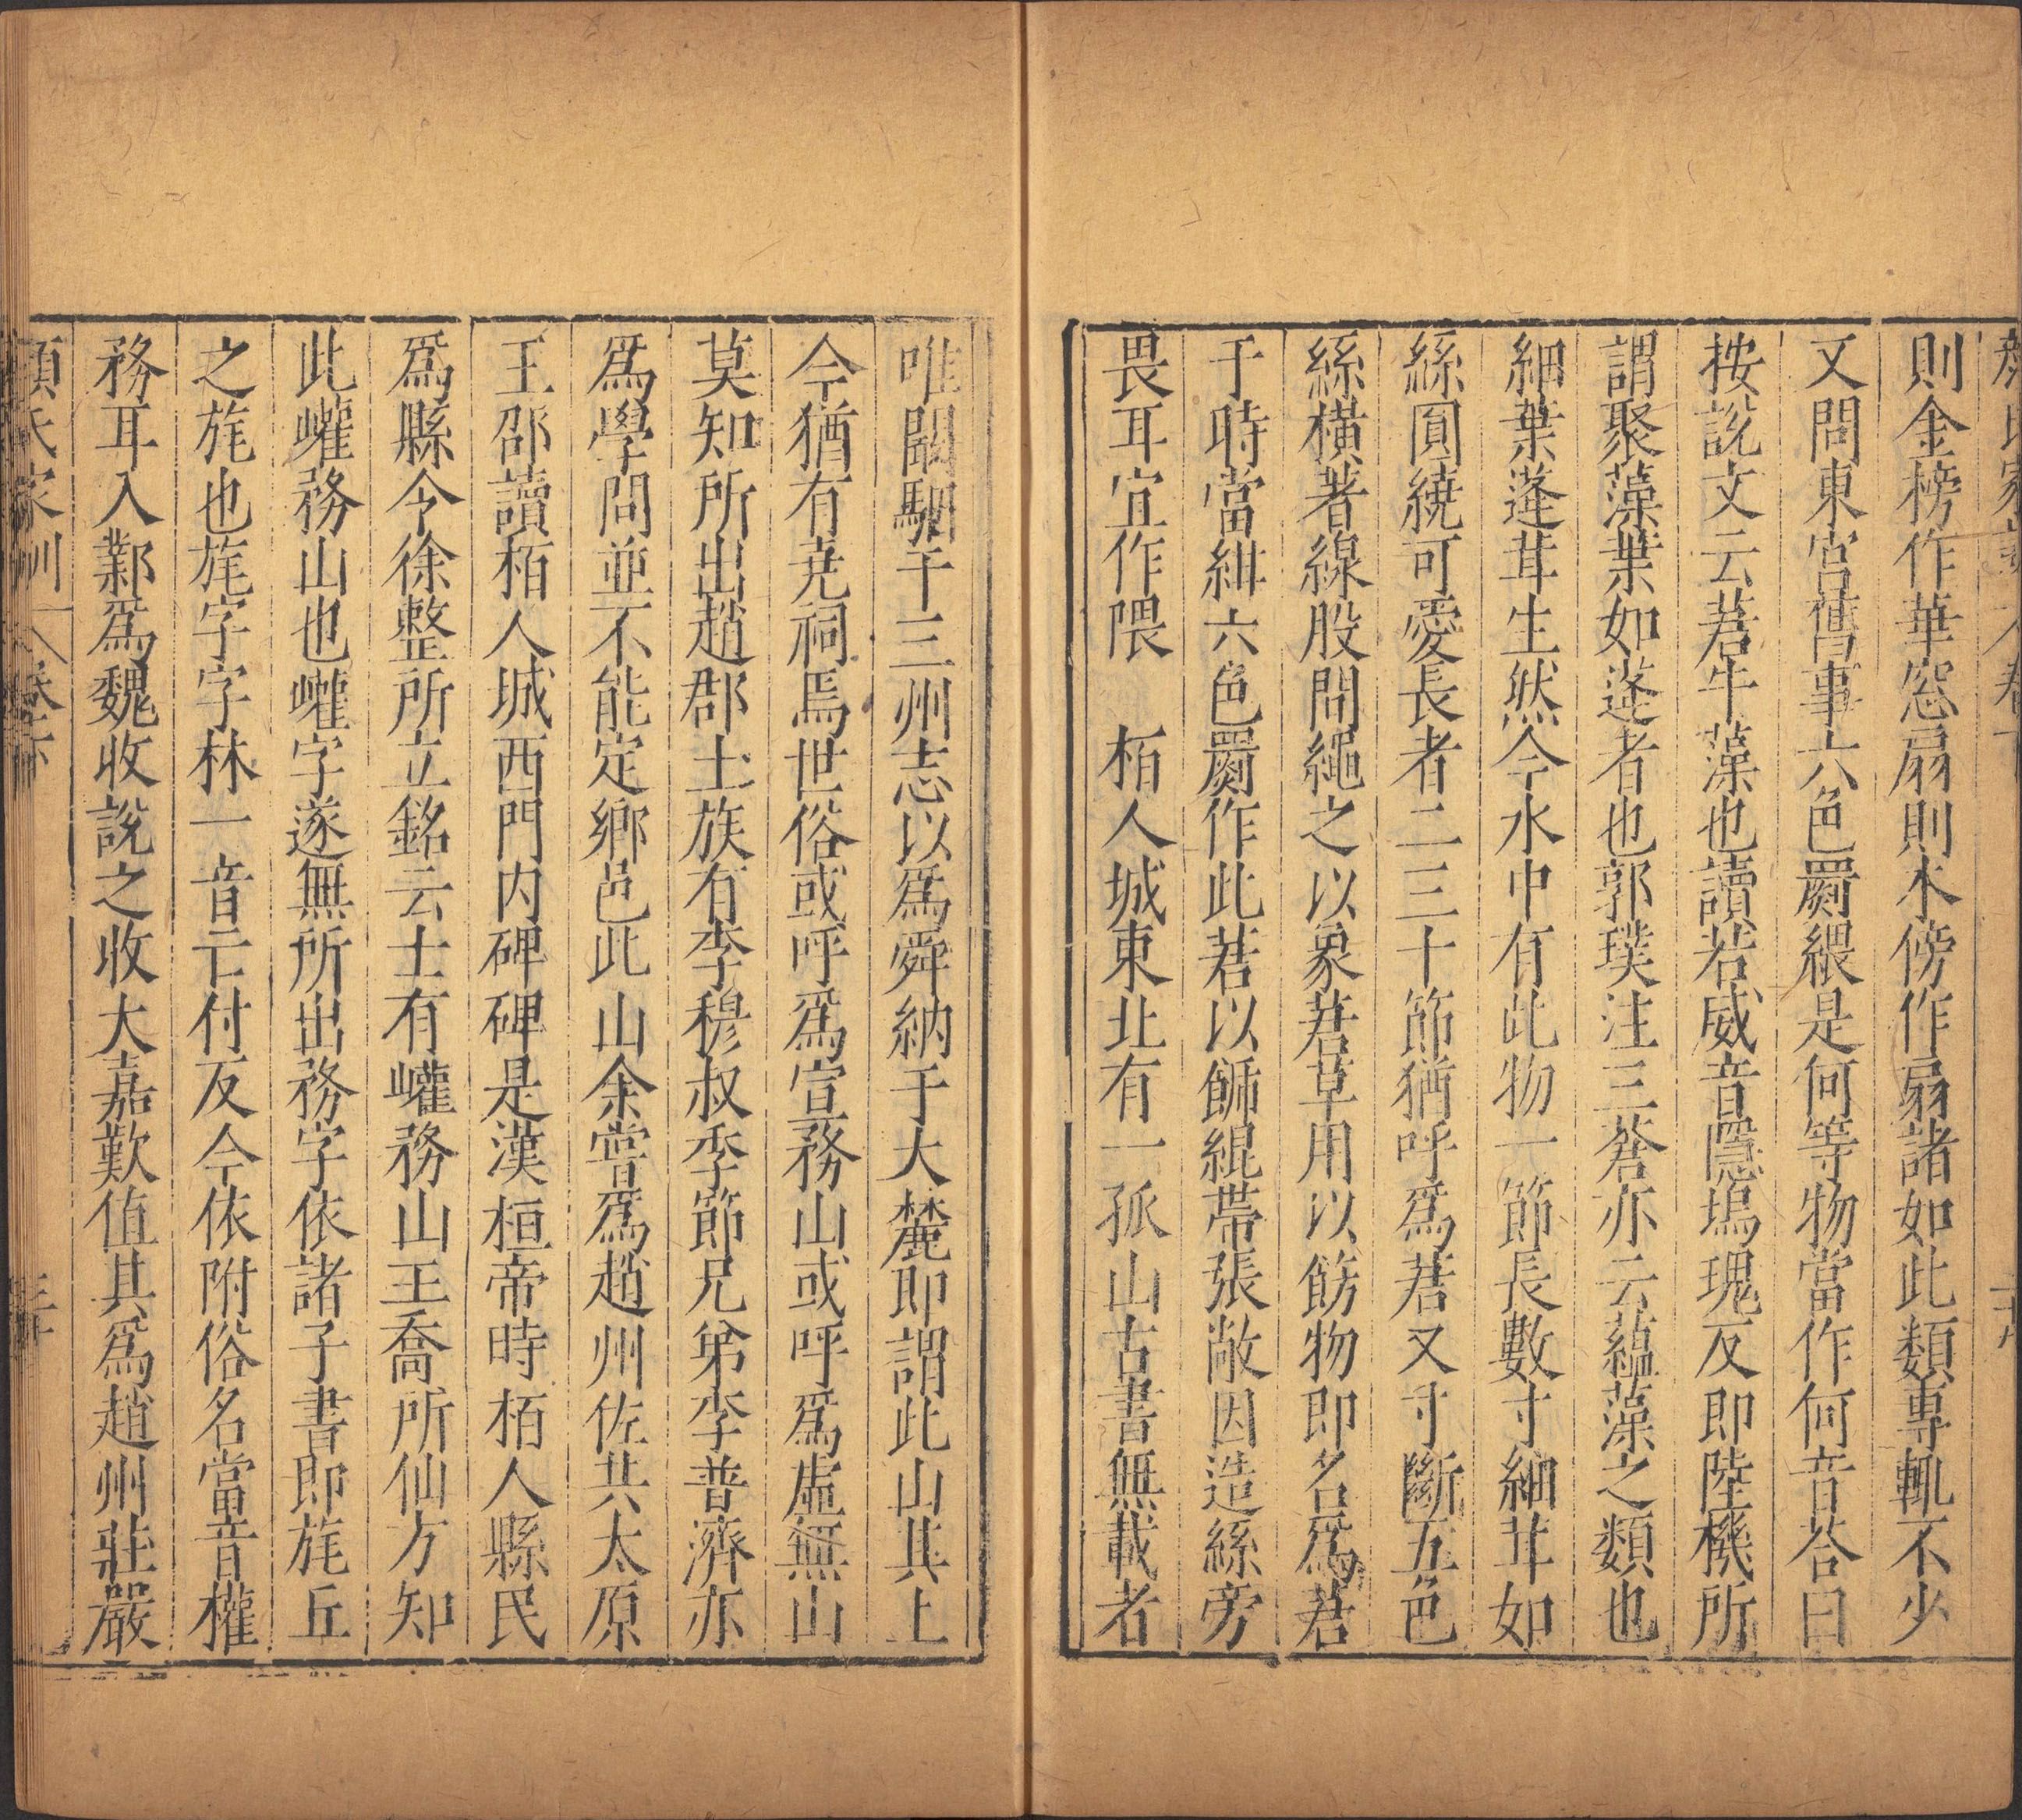 則金榜作華窓扇則木傍作扇諸如此類專輒不少
又問東宮舊事六色罽緦是何等物當作何音荅曰
按說文云莙牛藻也讀若威音隱塢瑰反即陸機所
謂聚藻葉如蓬者也郭璞注三蒼亦云蘊藻之類也
細葉蓬茸生然今水中有此物一節長數寸細茸如
絲圓繞可愛長者二三十節猶呼爲莙又寸斷五色
絲横著線股間繩之以象莙草用以飾物即名爲莙
于時當紺六色罽作此莙以飾緄帶張敞因造絲旁
畏耳宜作隈　栢人城東北有一孤山古書無載者
唯闞駰十三州志以爲舜納于大麓即謂此山其上
今猶有堯祠焉世俗或呼爲宣務山或呼爲虛無山
莫知所出趙郡士族有李穆叔李節兄弟李普濟亦
爲學問並不能定鄉邑此山余嘗爲趙州佐共太原
王邵讀栢人城西門内碑碑是漢桓帝時栢人縣民
爲縣令徐整所立銘云土有巏務山王喬所仙方知
此巏務山也巏字遂無所出務字依諸子書即旄丘
之旄也旄字字林一音亡付反今依附俗名當音權
務耳入鄴爲魏收說之收大嘉歎值其爲趙州莊嚴
顏氏家訓 卷下